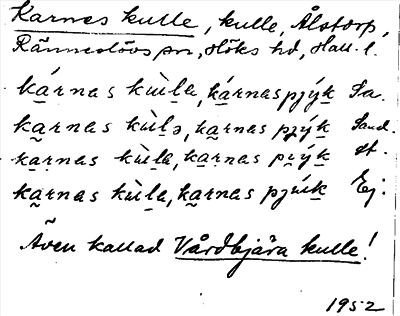 Karnes kulle, kulle, Ålstorp,
Ränneslövs sn, Höks hd, Hall. l.
ká̱rnas kùḻa, ká̱rnas pjýḵ Sa.
ka̰rnas kùḻə, ka̰rnas pjýḵ Sand.
ka̱rnas kùḻa, ka̱rnas pýḵ st.
ka̰rnas kùḻa, ka̰rnas pjuḵ Ej.
Även kallad Vårdbjära kulle!
1952